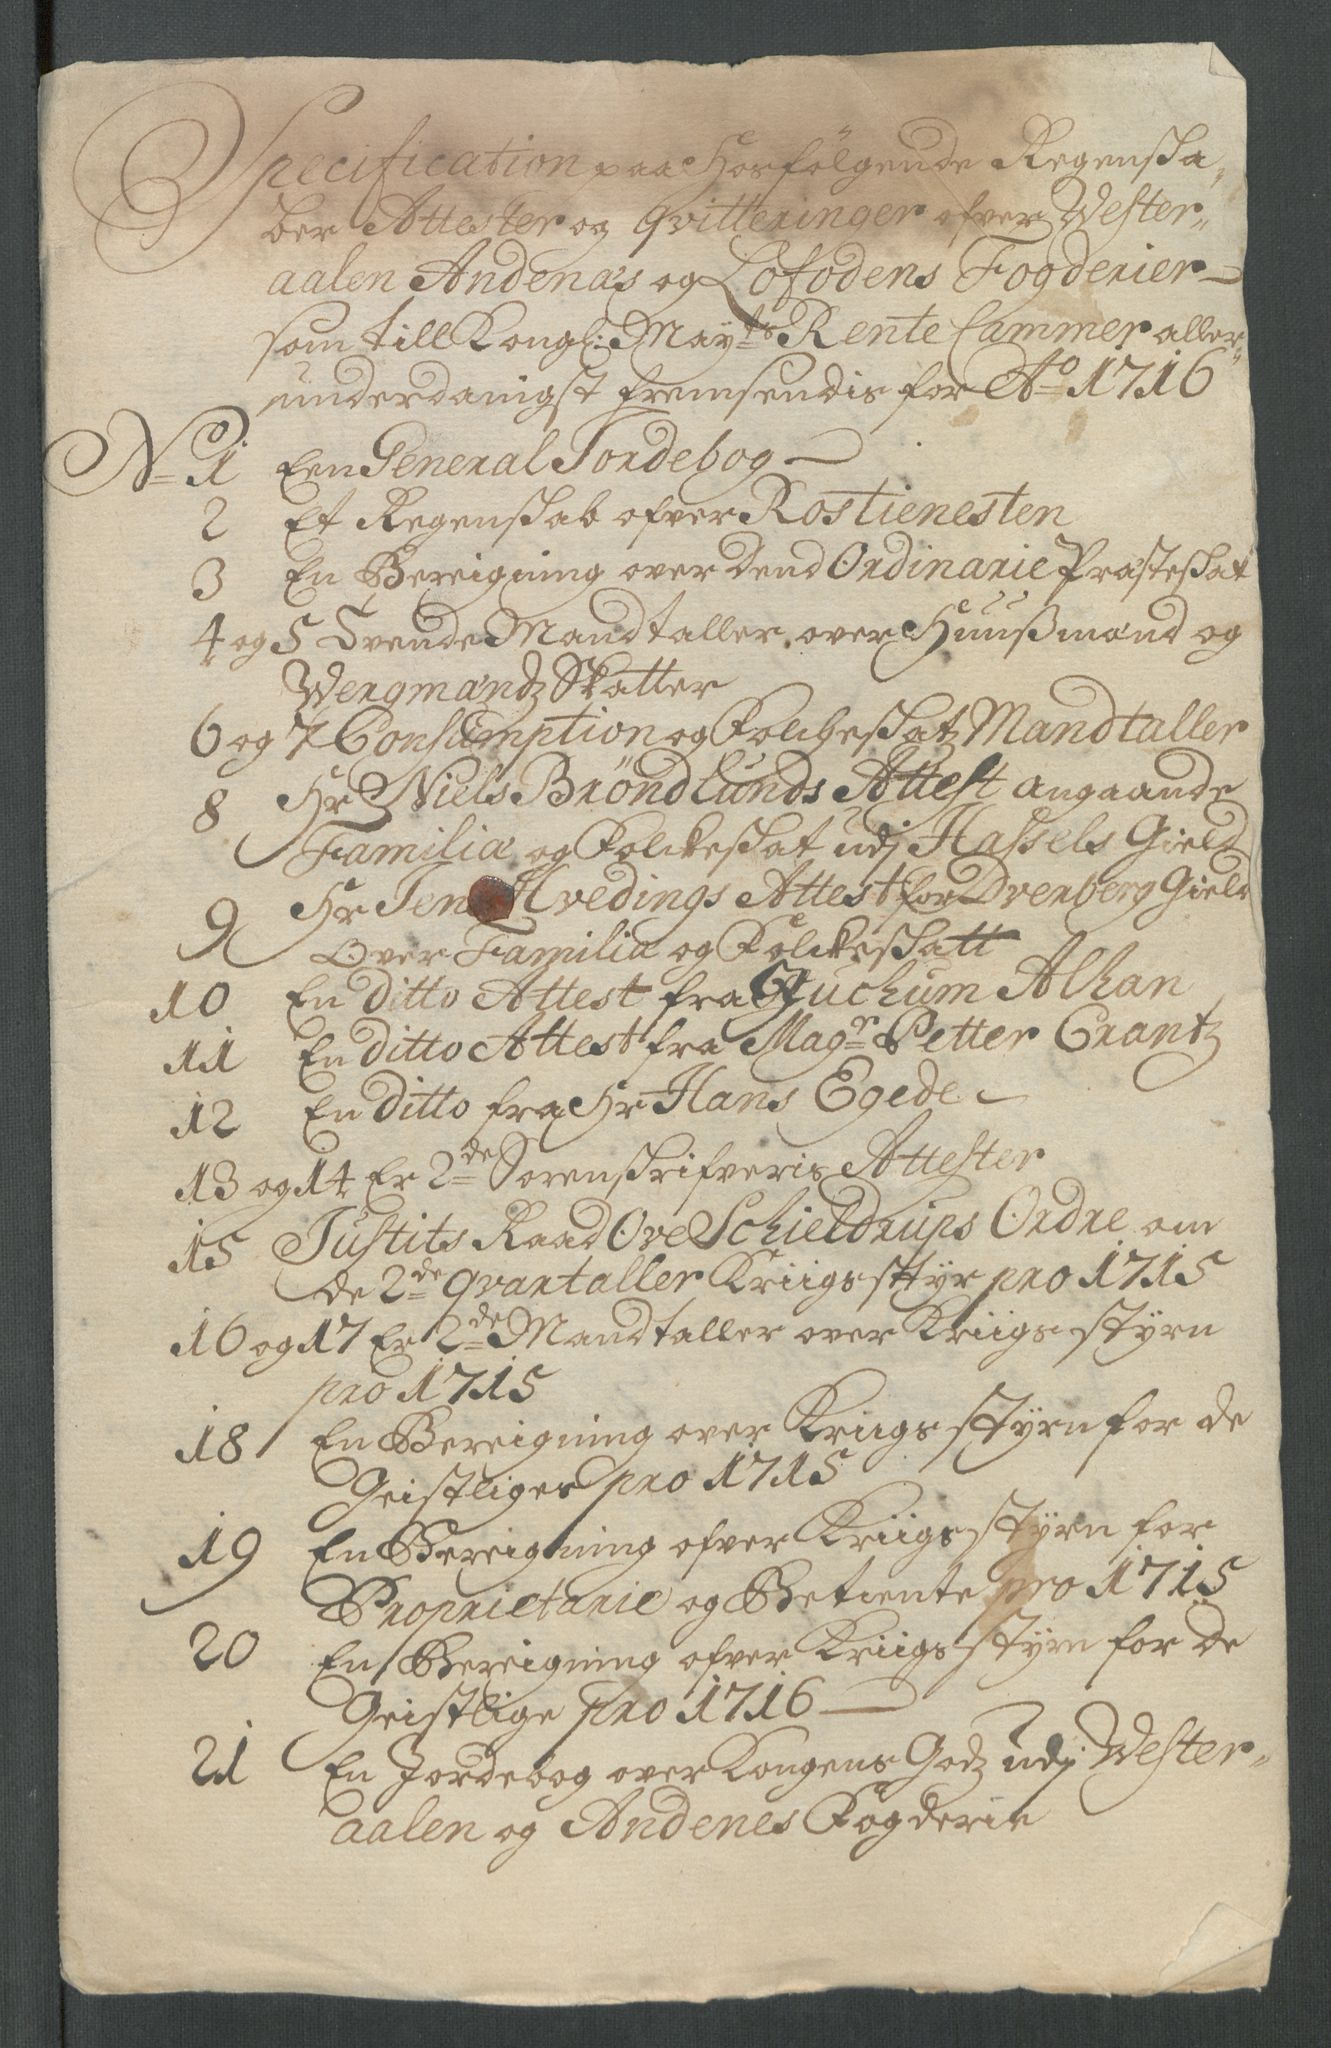 Specification paa Hosfölgende Regenska„
ber Attester og qvitteringer ofver Wester„
aalen Andenæs og Lofodens Fogderier
som till Kongl: May:ts Rente Cammer aller„
underdanigst fremsendis for Ao 1716
No 1 Een General Jordebog
2 Et Regenskab ofver Rostienesten
3 En Bereigning over dend Ordinarie Præsteskat
4 og 5 Tvende Mandtaller over Huusmænd og
Wergmændz Skatter
6 og 7 Consumption og Folcheskatz Mandtaller
8 Hr Niels Bröndlunds Attest angaande
Familiæ og Folckeskat udj Hassels Gield
9 Hr Jens Hvedings Attest for Dverberg Gield
Over Familia og Folckeskatt
10 En ditto Attest fra Hr Juchum Alhan
11 En ditto Attest fra Magr Petter Crantz
12 En ditto fra Hr Hans Egede
13 og 14 Er 2de Sorenskrifveris Attester
15 Justits Raad Ove Schieldrups Ordre om
de 2de qvartaller Kriigsstyr pro 1715
16 og 17 Er 2de Mandtaller over Kriigs styrn
pro 1715
18 En Bereigning over Kriigs styrn for de
Geistliges pro 1715
19 En Bereigning ofver Kriigs styrn for
Proprietarie og Betiente pro 1715
20 En Bereigning ofver Kriigs styrn for de
Geistlige pro 1716
21 En Jordebog over Kongens Godz udj Wester„
aalen og Andenes Fogderie